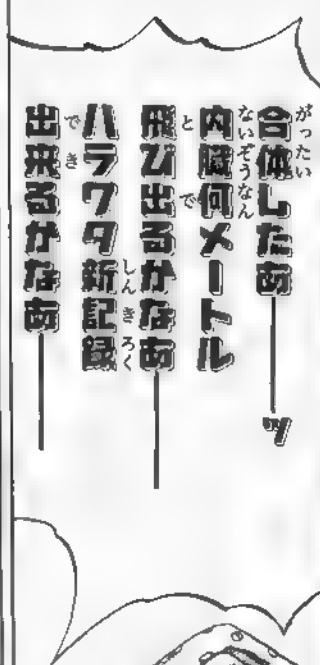 合体したあ――ッ
内臓何メートル
飛び出るかなあ――
ハラワタ新記録
出来るかなあ――